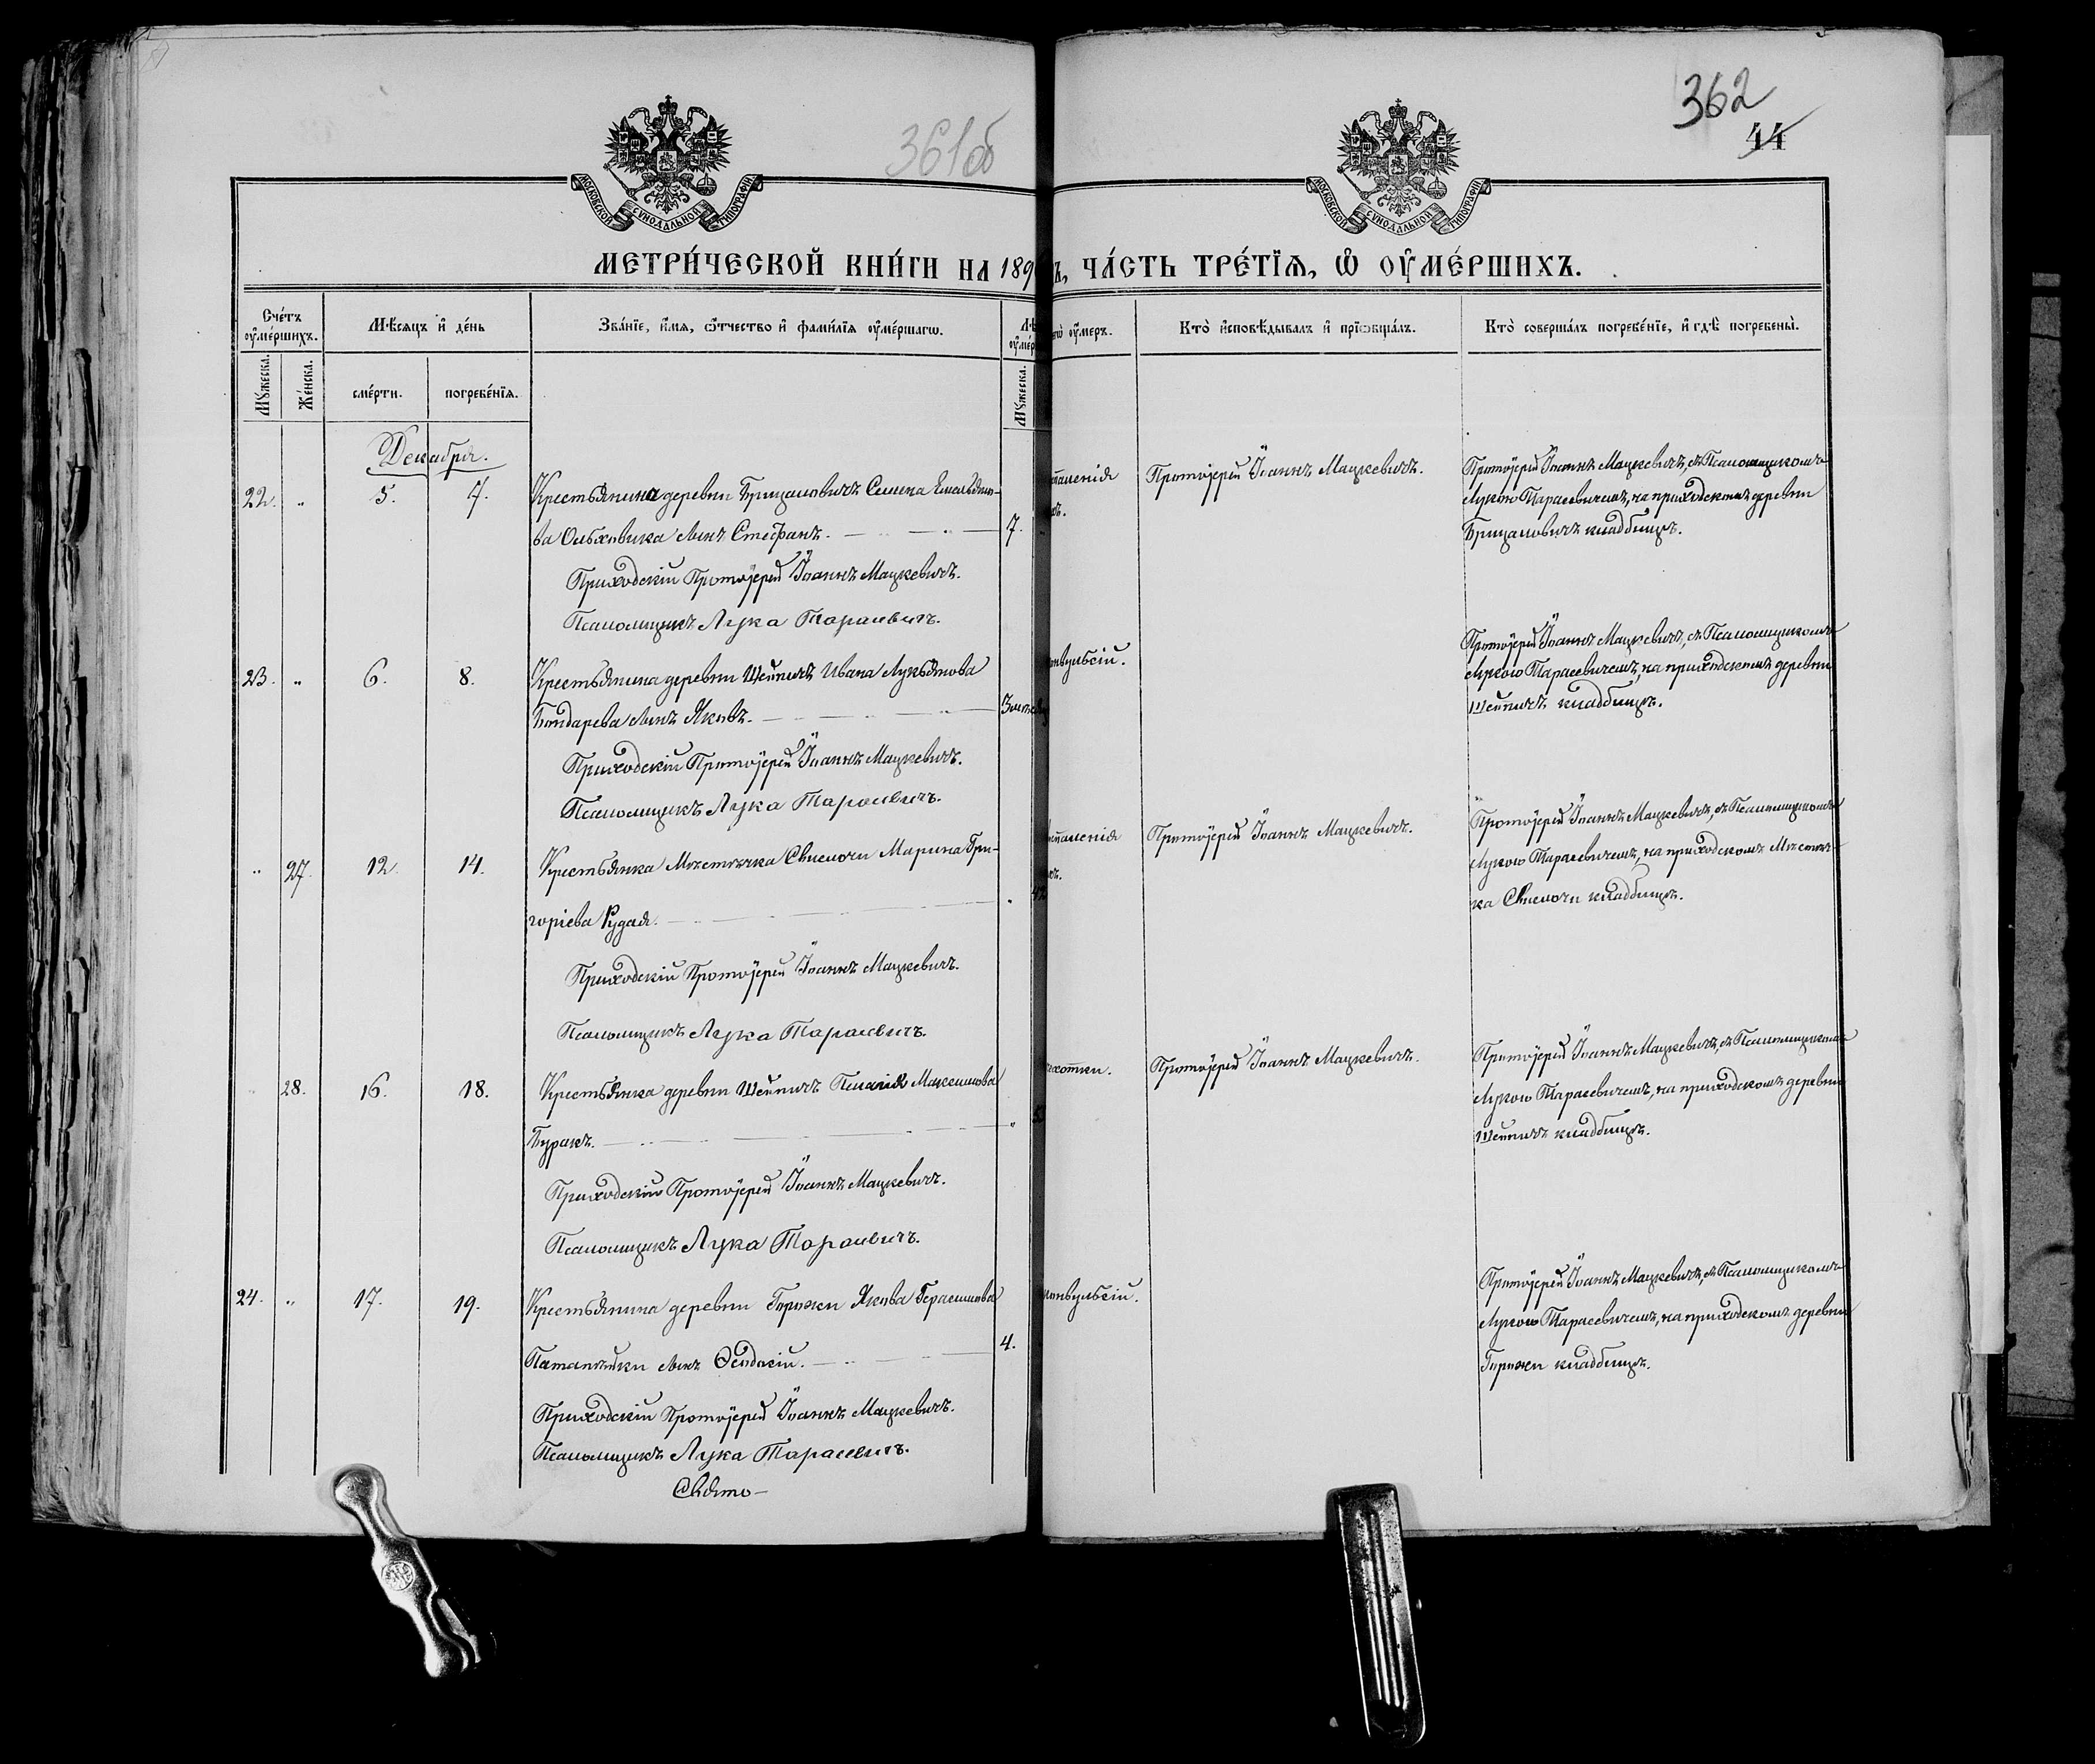 361об
362
44
МОСКОВСКОЙ СУНОДАЛЬНОЙ ТИПОГРАФІИ
МОСКОВСКОЙ СУНОДАЛЬНОЙ ТИПОГРАФІИ
МЕТРИ́ЧЕСКОЙ КНИ́ГИ НА 189
Ъ, ЧА́СТЬ ТРЕ́ТЇѦ, Ѡ҆ ОУ҆МЕ́РШИХЪ.
Сче́тъ оу҆ме́ршихъ.
Мѣ́сяцъ и҆ де́нь
Зва́нїе, и҆́мя, ѻ҆́тчество и҆ фами́лїя оу҆ме́ршагѡ.
оу҆́меръ.
Кто̀ и҆сповѣ́дывалъ и҆ прїѡбща́лъ.
Кто̀ соверша́лъ погребе́нїе, и҆ гдѣ̀ погребены̀.
Мꙋ́жеска.
Же́нска.
сме́рти.
погребе́нїя.
Мꙋ́жеска.
Декабря.
22. " 5. 7. Крестьянина деревни Брицаловичъ Семена Емельяно-
ва Ольховика сынъ Стефанъ. 7.
Приходскій Протоіерей Іоаннъ Мацкевичъ.
Псаломщикъ Лука Тарасевичъ.
Протоіерей Іоаннъ Мацкевичъ.
Протоіерей Іоаннъ Мацкевичъ, съ Псаломщикомъ
Лукою Тарасевичемъ, на приходскомъ деревни
Брицаловичъ кладбищѣ.
23. " 6. 8. Крестьянина деревни Шейпичъ Ивана Лукьянова
Бондарева сынъ Яковъ.
Приходскій Протоіерей Іоаннъ Мацкевичъ.
Псаломщикъ Лука Тарасевичъ.
Протоіерей Іоаннъ Мацкевичъ, съ Псаломщикомъ
Лукою Тарасевичемъ, на приходскомъ деревни
Шейпичъ кладбищѣ.
" 27. 12. 14. Крестьянка Мѣстечка Свислочи Марина Гри-
горіева Рудая. " 42
Приходскій Протоіерей Іоаннъ Мацкевичъ.
Псаломщикъ Лука Тарасевичъ.
Протоіерей Іоаннъ Мацкевичъ.
Протоіерей Іоаннъ Мацкевичъ, съ Псаломщикомъ
Лукою Тарасевичемъ, на приходскомъ Мѣстеч-
ка Свислочи кладбищѣ.
" 28. 16. 18. Крестьянка деревни Шейпичъ Пелагія Максимова
Буракъ. "
Приходскій Протоіерей Іоаннъ Мацкевичъ.
Псаломщикъ Лука Тарасевичъ.
Протоіерей Іоаннъ Мацкевичъ.
Протоіерей Іоаннъ Мацкевичъ, съ Псаломщикомъ
Лукою Тарасевичемъ, на приходскомъ деревни
Шейпичъ кладбищѣ.
24. " 17. 19. Крестьянина деревни Горожи Якова Герасимова
сынъ Ѳеодосій. 4.
Приходскій Протоіерей Іоаннъ Мацкевичъ.
Псаломщикъ Лука Тарасевичъ.
Свято-
Протоіерей Іоаннъ Мацкевичъ, съ Псаломщикомъ
Лукою Тарасевичемъ, на приходскомъ деревни
Горожи кладбищѣ.